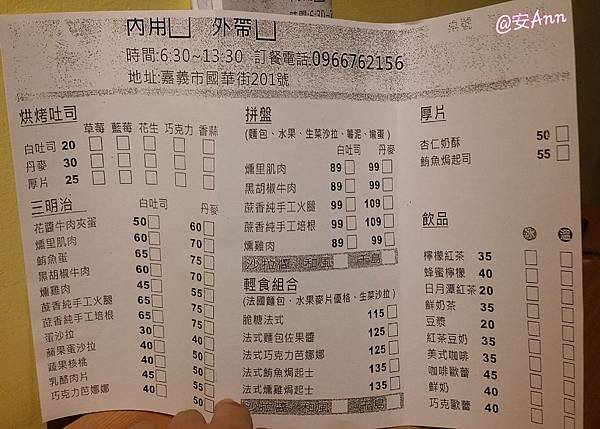 @安Ann
內用□ 外帶□
桌號
時間:6:30~13:30 訂餐電話0966762156
地址:嘉義市國華街201號
烘烤吐司
草莓 藍莓 花生 巧克力 香蒜
白吐司 20
丹麥 30
厚片 25
三明治 白吐司 丹麥
花醬牛肉夾蛋 50 60
燻里肌肉 60 70
鮪魚蛋 65 75
黑胡椒牛肉 60 70
燻雞肉 55 65
蔗香純手工火腿 65 75
蔗香純手工培根 65 75
蛋沙拉 30 40
蘋果蛋沙拉 40 50
蔬果核桃 40 50
乳醋肉片 45 55
巧克力芭娜娜 40 50
拼盤
(麵包、水果、生菜沙拉、薯泥、嫩蛋)
白吐司 丹麥
燻里肌肉 89 99
黑胡椒牛肉 89 99
蔗香純手工火腿 99 109
蔗香純手工培根 99 109
燻雞肉 89 99
沙拉醬 和風 千島
輕食組合
(法國麵包、水果麥片優格、生菜沙拉)
脆糖法式 115
法式麵包佐果醬 125
法式巧克力芭娜娜 125
法式鮪魚焗起士 135
法式燻雞焗起士 135
沙拉醬 和風 千島
厚片
杏仁奶酥 50
鮪魚焗起司 55
飲品 冰 溫
檸檬紅茶 35
蜂蜜檸檬 40
日月潭紅茶 20
鮮奶茶 35
豆漿 20
紅茶豆奶 35
美式咖啡 35
咖啡歐蕾 45
鮮奶 40
巧克歐蕾 40